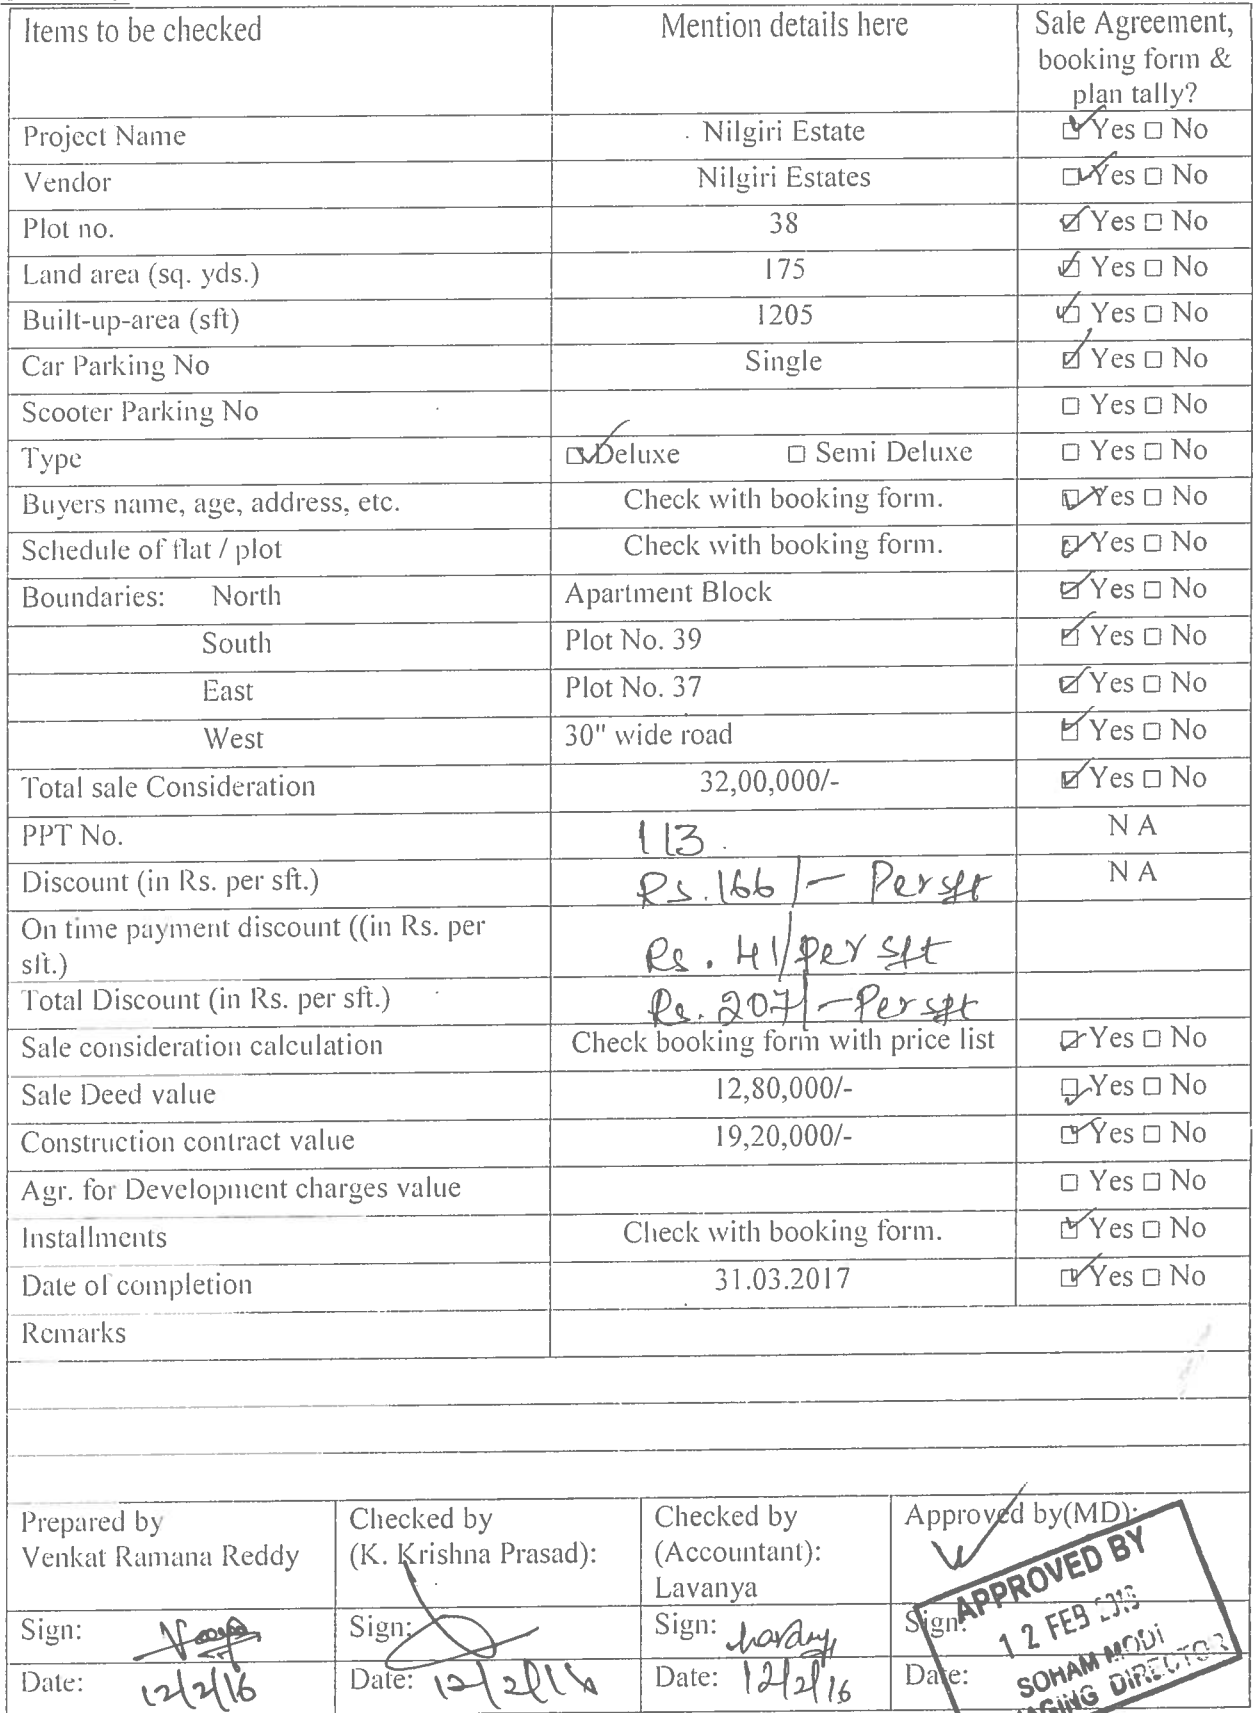 Items to be checked
Mention details here
Sale Agreement,
booking form &
plan tally?
Project Name
Nilgiri Estate
Yes □ No
Vendor
Nilgiri Estates
Yes □ No
Plot no.
38
Yes □ No
Land area (sq. yds.)
175
Yes □ No
Built-up-area (sft)
1205
Yes □ No
Car Parking No
Single
Yes □ No
Scooter Parking No
□ Yes □ No
Type
Deluxe □ Semi Deluxe
□ Yes □ No
Buyers name, age, address, etc.
Check with booking form.
Yes □ No
Schedule of flat / plot
Check with booking form.
Yes □ No
Boundaries: North
Apartment Block
Yes □ No
South
Plot No. 39
Yes □ No
East
Plot No. 37
Yes □ No
West
30" wide road
Yes □ No
Total sale Consideration
32,00,000/-
Yes □ No
PPT No.
113.
N A
Discount (in Rs. per sft.)
Rs.166/- Per sft
N A
On time payment discount ((in Rs. per
sft.)
Rs. 41/per sft
Total Discount (in Rs. per sft.)
Rs. 207/- Per sft
Sale consideration calculation
Check booking form with price list
Yes □ No
Sale Deed value
12,80,000/-
Yes □ No
Construction contract value
19,20,000/-
Yes □ No
Agr. for Development charges value
□ Yes □ No
Installments
Check with booking form.
Yes □ No
Date of completion
31.03.2017
Yes □ No
Remarks
Prepared by
Venkat Ramana Reddy
Checked by
(K. Krishna Prasad):
Checked by
(Accountant):
Lavanya
Approved by(MD):
Sign:
Sign:
Sign:
Sign:
Date: 12/2/16
Date: 12/2/16
Date: 12/2/16
Date:
APPROVED BY
12 FEB
SOHAM MODI
DIRECTOR